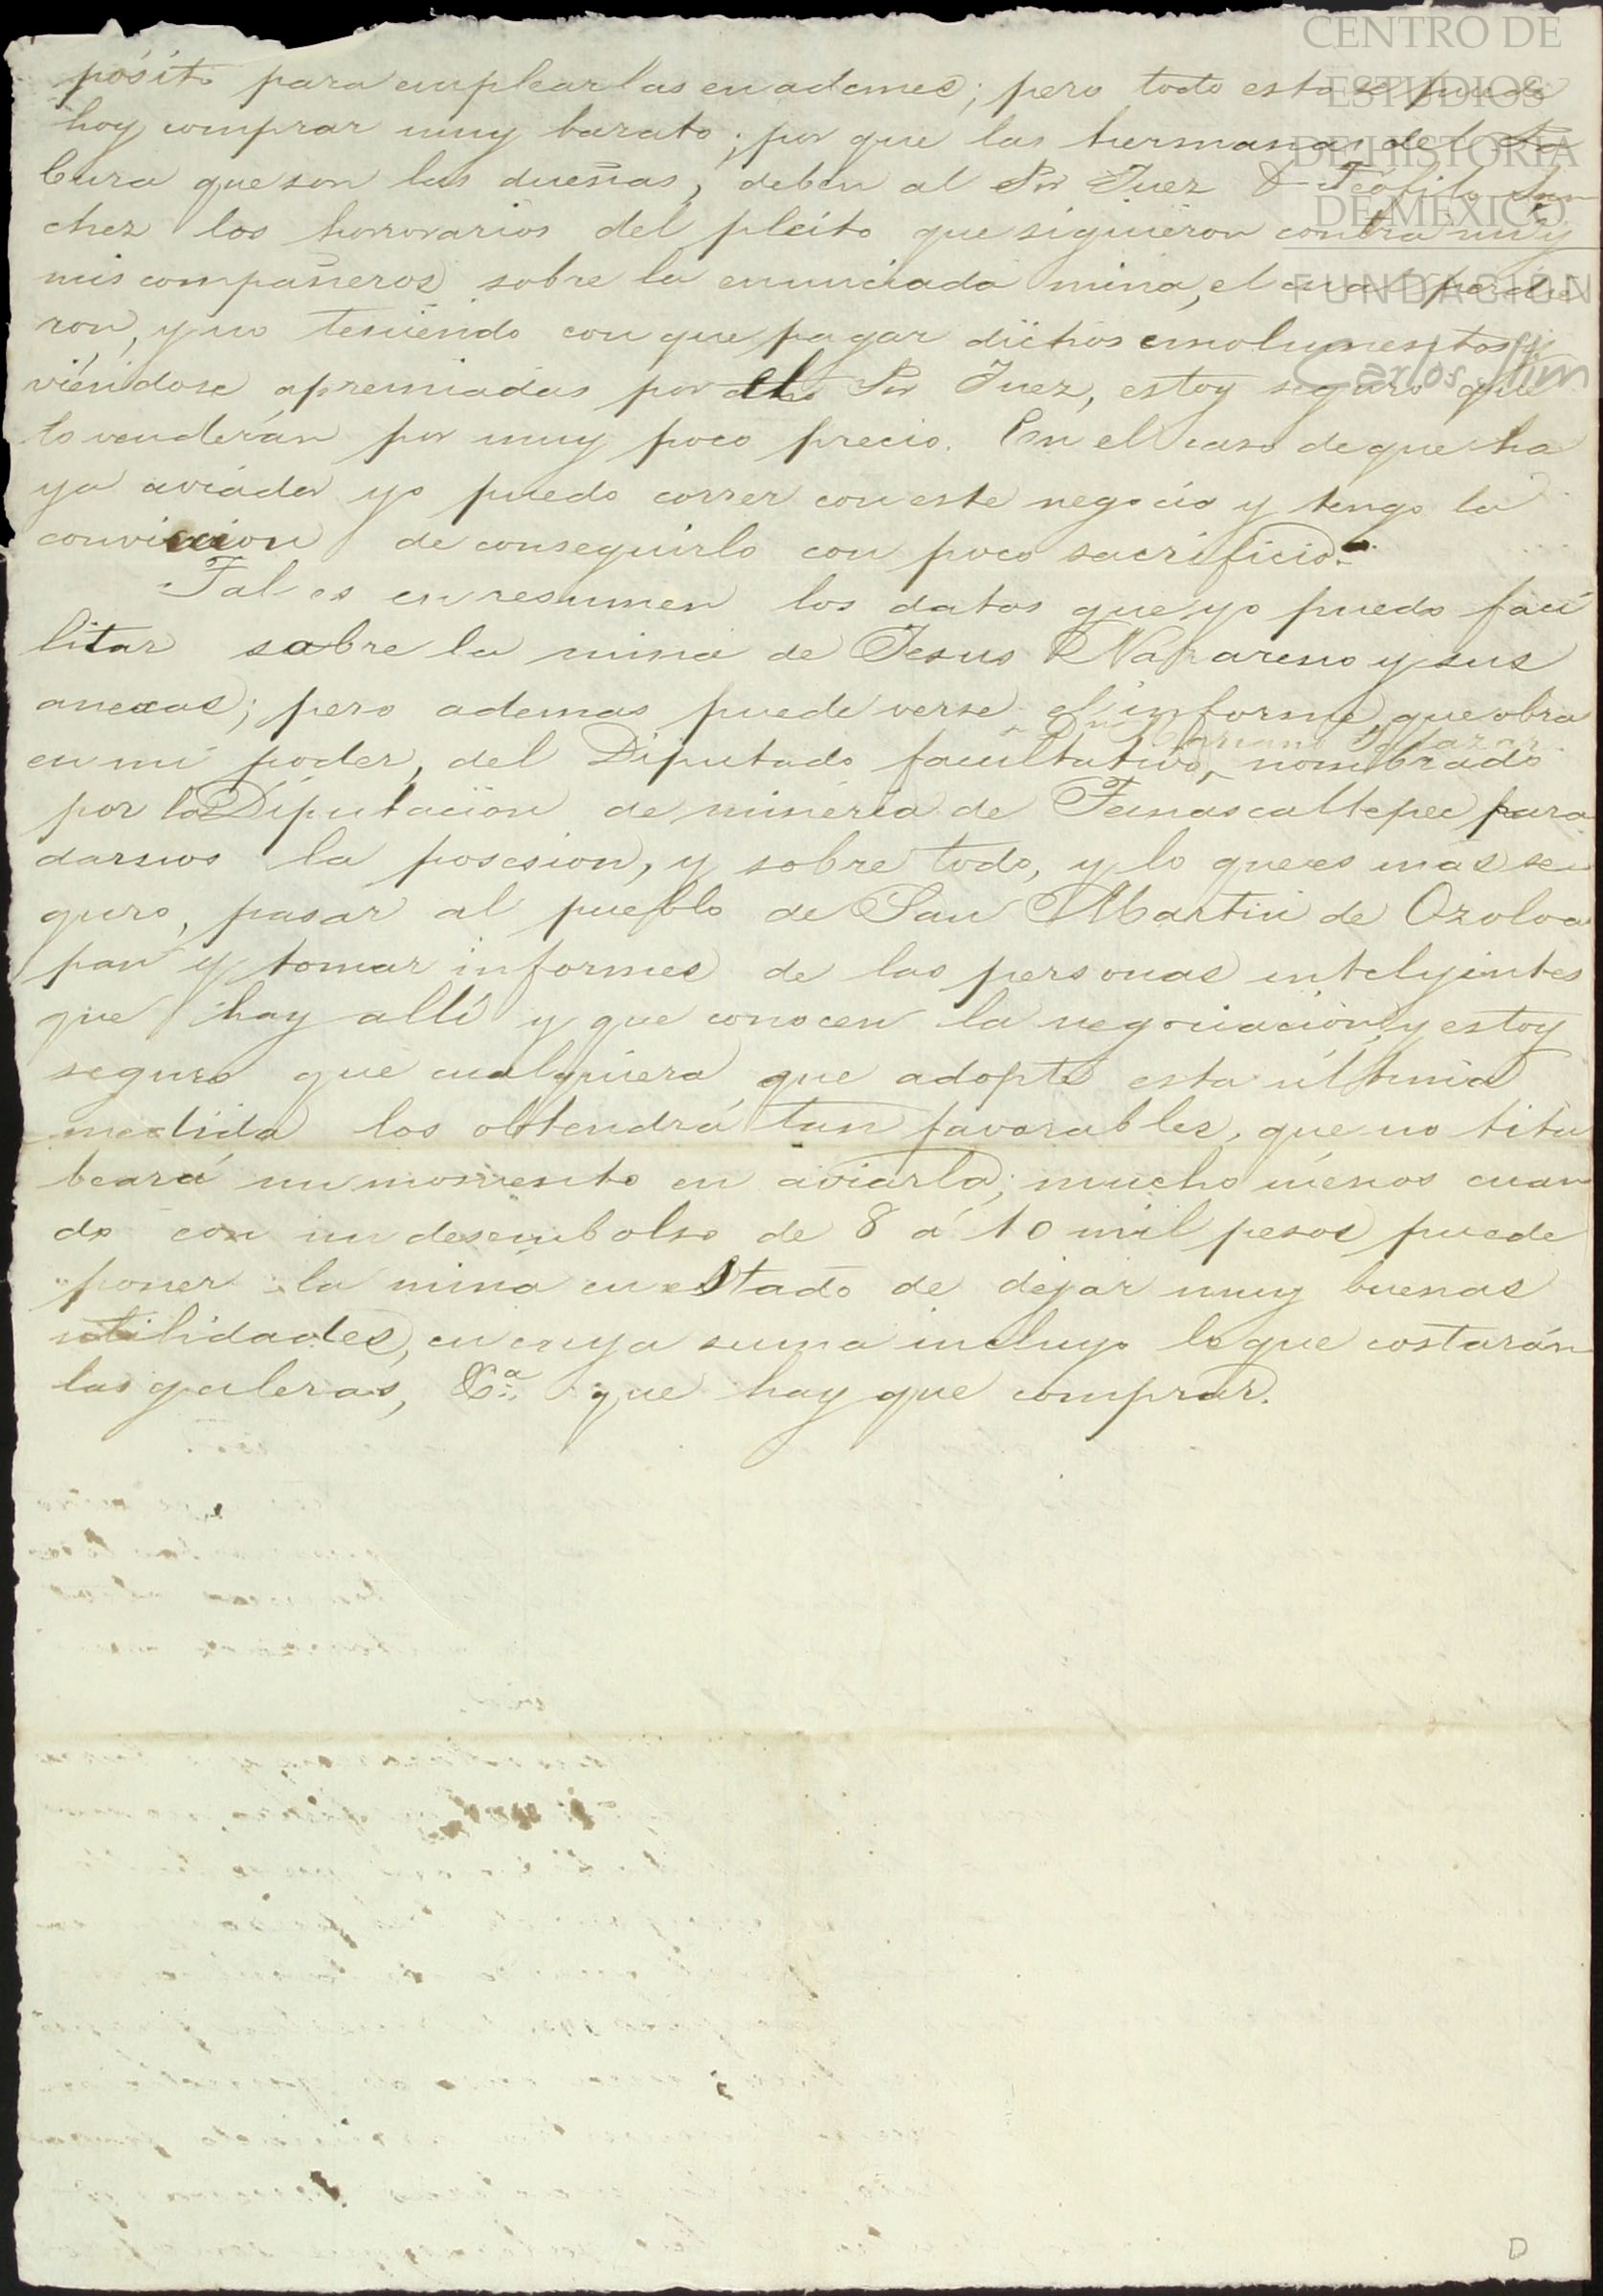 CENTRO DE
ESTUDIOS
DE HISTORIA
DE MÉXICO
FUNDACIÓN
Carlos Slim
pósito para emplearlas en ademes; pero todo esto se puede
hoy comprar muy barato; por que las hermanas del Sr
Cura que son las dueñas, deben al Sr Juez D Teófilo San
chez los honorarios del pleito que siguieron contra mi y
mis compañeros sobre la enunciada mina, el cual perdie
ron, y no teniendo con que pagar dichos emolumentos y
viéndose apremiadas por el Sr Juez, estoy seguro que
lo venderán por muy poco precio. En el caso de que ha
ya aviador yo puedo correr con este negocio y tengo la
conviccion de conseguirlo con poco sacrificio.
Tal es en resumen los datos que yo puedo faci
litar sobre la mina de Jesus Nazareno y sus
anexas; pero ademas puede verse el informe, que obra
en mi poder, del Diputado facultativo, nombrado
por la Diputacion de mineria de Temascaltepec para
darnos la posesion, y sobre todo, y lo que es mas se
guro, pasar al pueblo de San Martin de Ozoloa
pan y tomar informes de las personas intelijentes
que hay allí y que conocen la negociación, y estoy
seguro que cualquiera que adopte esta última
medida los obtendrá tan favorables, que no titu
beará un momento en aviarla; mucho ménos cuan
do con un desembolso de 8 á 10 mil pesos puede
poner la mina en estado de dejar muy buenas
utilidades, en cuya suma incluyo lo que costarán
las galeras, &a que hay que comprar.
D